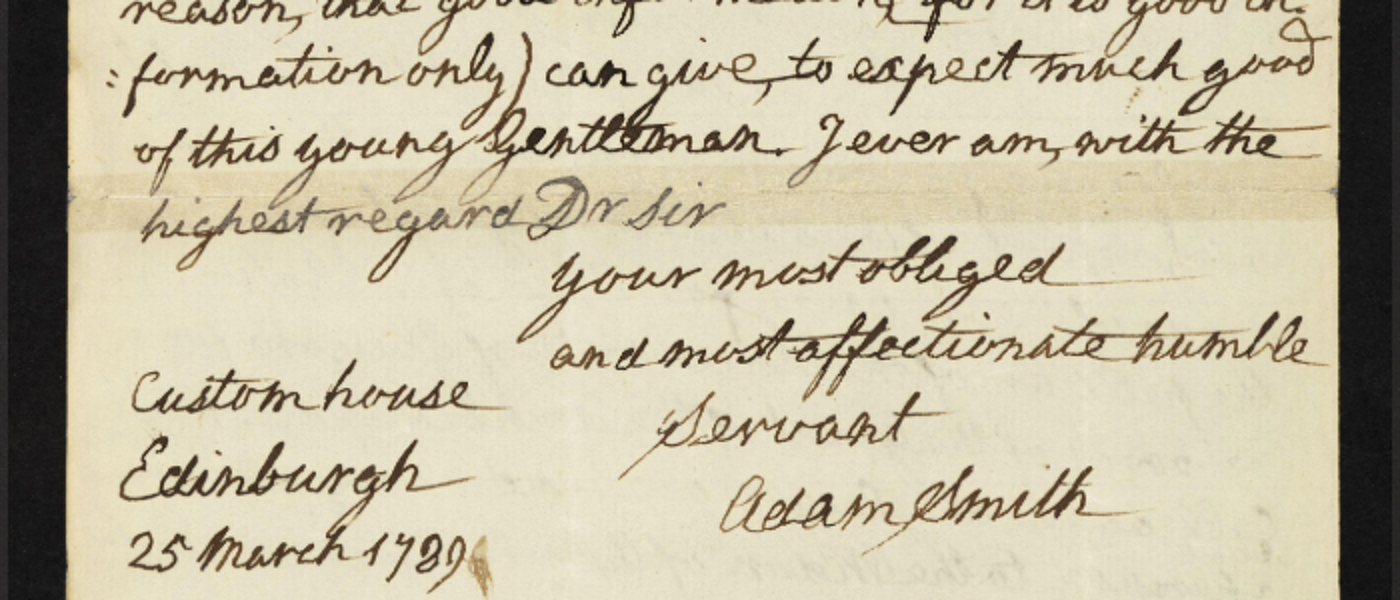 reason, that good information, (for it is good in:
:formation only) can give, to expect much good
of this young Gentleman. I ever am, with the
highest regard Dr Sir
your most obliged
and most affectionate humble
Servant
Adam Smith
Custom house
Edinburgh
25 March 1789